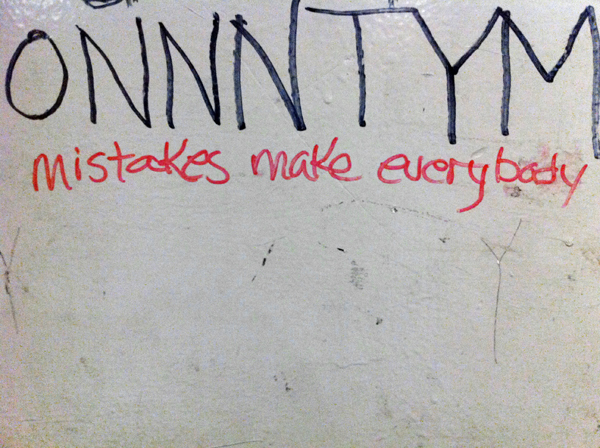 ONNNTYM
mistakes make everybody